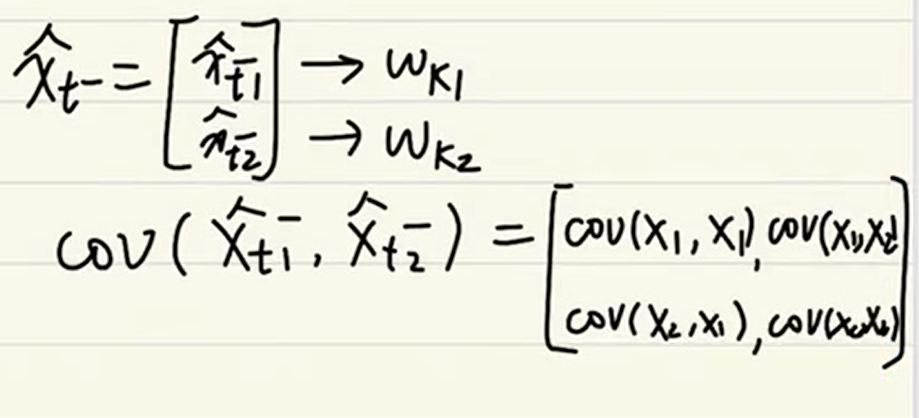 x̂ₜ⁻ = [x̂ₜ₁⁻] → w_K1
[x̂ₜ₂⁻] → w_K2
cov(x̂ₜ₁⁻, x̂ₜ₂⁻) = [cov(x₁, x₁), cov(x₁, x₂)
cov(x₂, x₁), cov(x₂, x₂)]